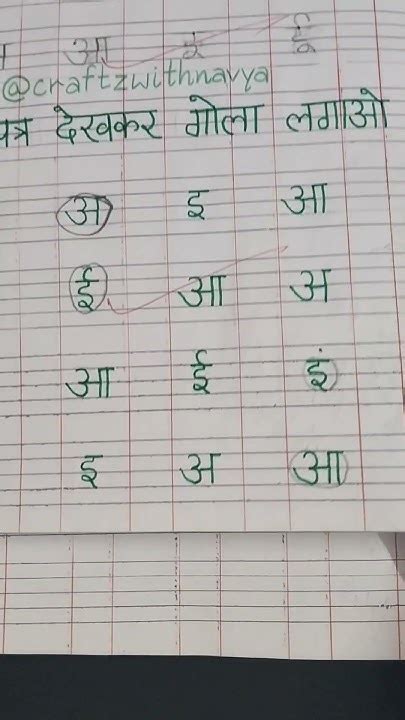 आ इ ई
@craftzwithnavya
देखकर गोला लगाओ
अ इ आ
ई आ अ
आ ई इं
इ अ आ